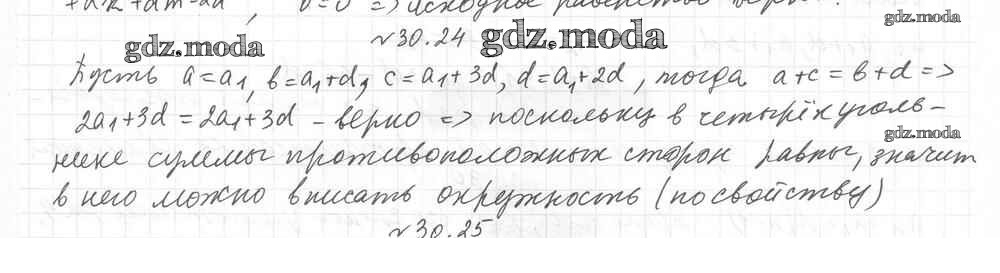 => исходное равенство верно.
№30.24
gdz.moda gdz.moda gdz.moda
Пусть a=a₁, b=a₁+d, c=a₁+3d, d=a₁+2d, тогда a+c=b+d=>
2a₁+3d=2a₁+3d - верно => поскольку в четырёхуголь-
gdz.moda
нике суммы противоположных сторон равны, значит
в него можно вписать окружность (по свойству)
№30.25